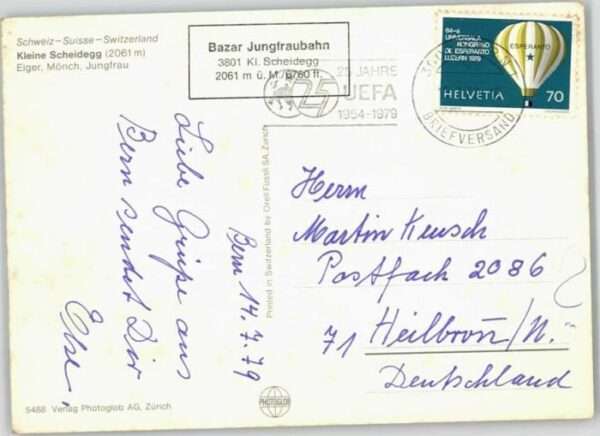 Schweiz - Suisse - Switzerland
Kleine Scheidegg (2061 m)
Eiger, Mönch, Jungfrau
Bazar Jungfraubahn
3801 Kl. Scheidegg
2061 m ü. M./6760 ft.
25 JAHRE
UEFA
1954-1979
BRIEFVERSAND
64-a
UNIVERSALA
KONGRESO
DE ESPERANTO
LUZERN 1979
ESPERANTO
HELVETIA 70
Liebe Grüße aus
Bern sendet Dir
Else.
Bern 14.7.79
Printed in Switzerland by Orell Füssli SA, Zürich
Herrn
Martin Keusch
Postfach 2086
71 Heilbronn/N.
Deutschland
PHOTOGLOB
5488 Verlag Photoglob AG, Zürich